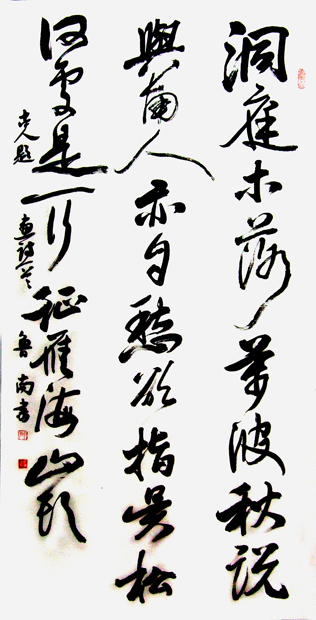 洞庭木落萬波秋説
與南人亦自愁欲指吳松
何處是一行征雁海山頭
元人題畫詩一首 魯南書